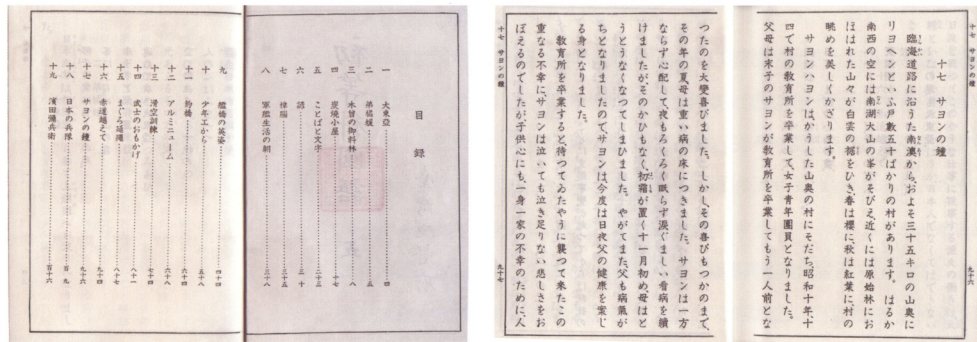 目錄
一 大東亞
二 弟橘媛 五
三 木曾の御料林 八
四 炭燒小屋 十七
五 ことばと文字 二十三
六 三十
七 三十五
八 軍艦生活の朝 三十八
九 艦橋の英姿 四十四
十 少年工から 五十
十一 五十八
十二 アルミニューム 六十八
十三 滑空訓練 七十四
十四 武士のおもかげ 八十一
十五 まぐろ延繩 八十七
十六 赤道越えて 九十四
十七 サヨンの鐘 九十六
十八 日本の兵隊 百九
十九 濱田彌兵衛 百十六
十七 サヨンの鐘 九十六
十七 サヨンの鐘
臨海道路に沿うた南澳から、およそ三十五キロの山奥に
リヨヘンといふ戸數五十ばかりの村があります。はるか
南西の空には南湖大山の峯がそびえ、近くには原始林にお
ほはれた山々が白雲の裾をひき、春は櫻に、秋は紅葉に、村の
眺めを美しくかざります。
サヨンハヨンは、かうした山奥の村にそだち、昭和十年、十
四で村の教育所を卒業して、女子青年團員となりました。
父母は末子のサヨンが教育所を卒業してもう一人前とな
つたのを大變喜びました。しかし、その喜びもつかのまで、
その年の夏、母は重い病の床につきました。サヨンは一方
ならず心配して、夜もろくろく眠らず涙ぐましい看病を續
けましたが、そのかひもなく、初霜が置く十一月初め、母はと
うとうなくなつてしまひました。やがてまた、父も病氣が
ちとなりましたので、サヨンは、今度は日夜父の健康を案じ
る身となりました。
教育所を卒業すると、待つてゐたやうに襲つて來たこの
重なる不幸に、サヨンは泣いても泣き足りない悲しさをお
ぼえるのでしたが、子供心にも、一身一家の不幸のために、人
十七 サヨンの鐘 九十七